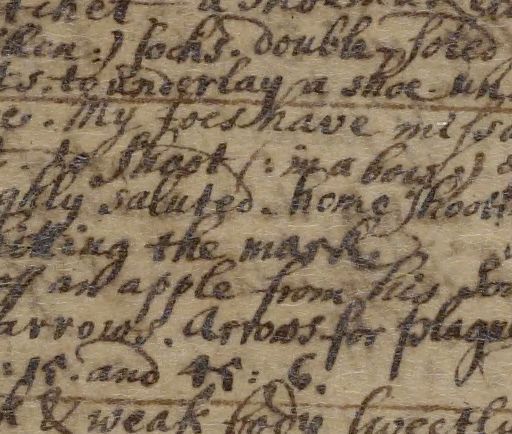 tchet a
ken:) socks. double soled
ts. to underlay a shoe.
e. My foes have
to shoot (: in a bow:)
ghly saluted. home shoot
hitting the mark
an apple from his
arrows. Arrows for plague
:15. and 45: 6.
& weak body sweetly